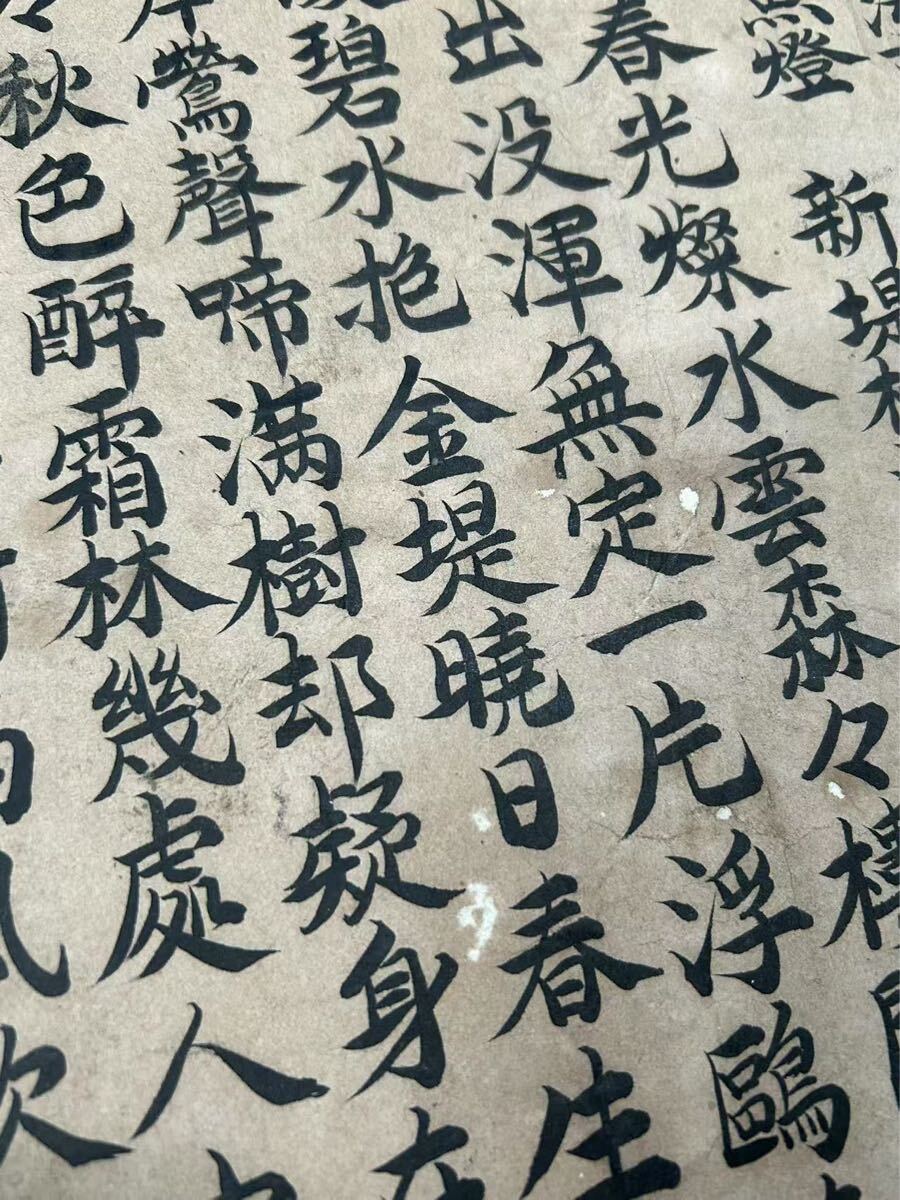 燈 新堤
春光燦水雲森々
出没渾無定一片浮鷗
碧水抱金堤曉日春生
鶯聲啼満樹却疑身在
々秋色醉霜林幾處人